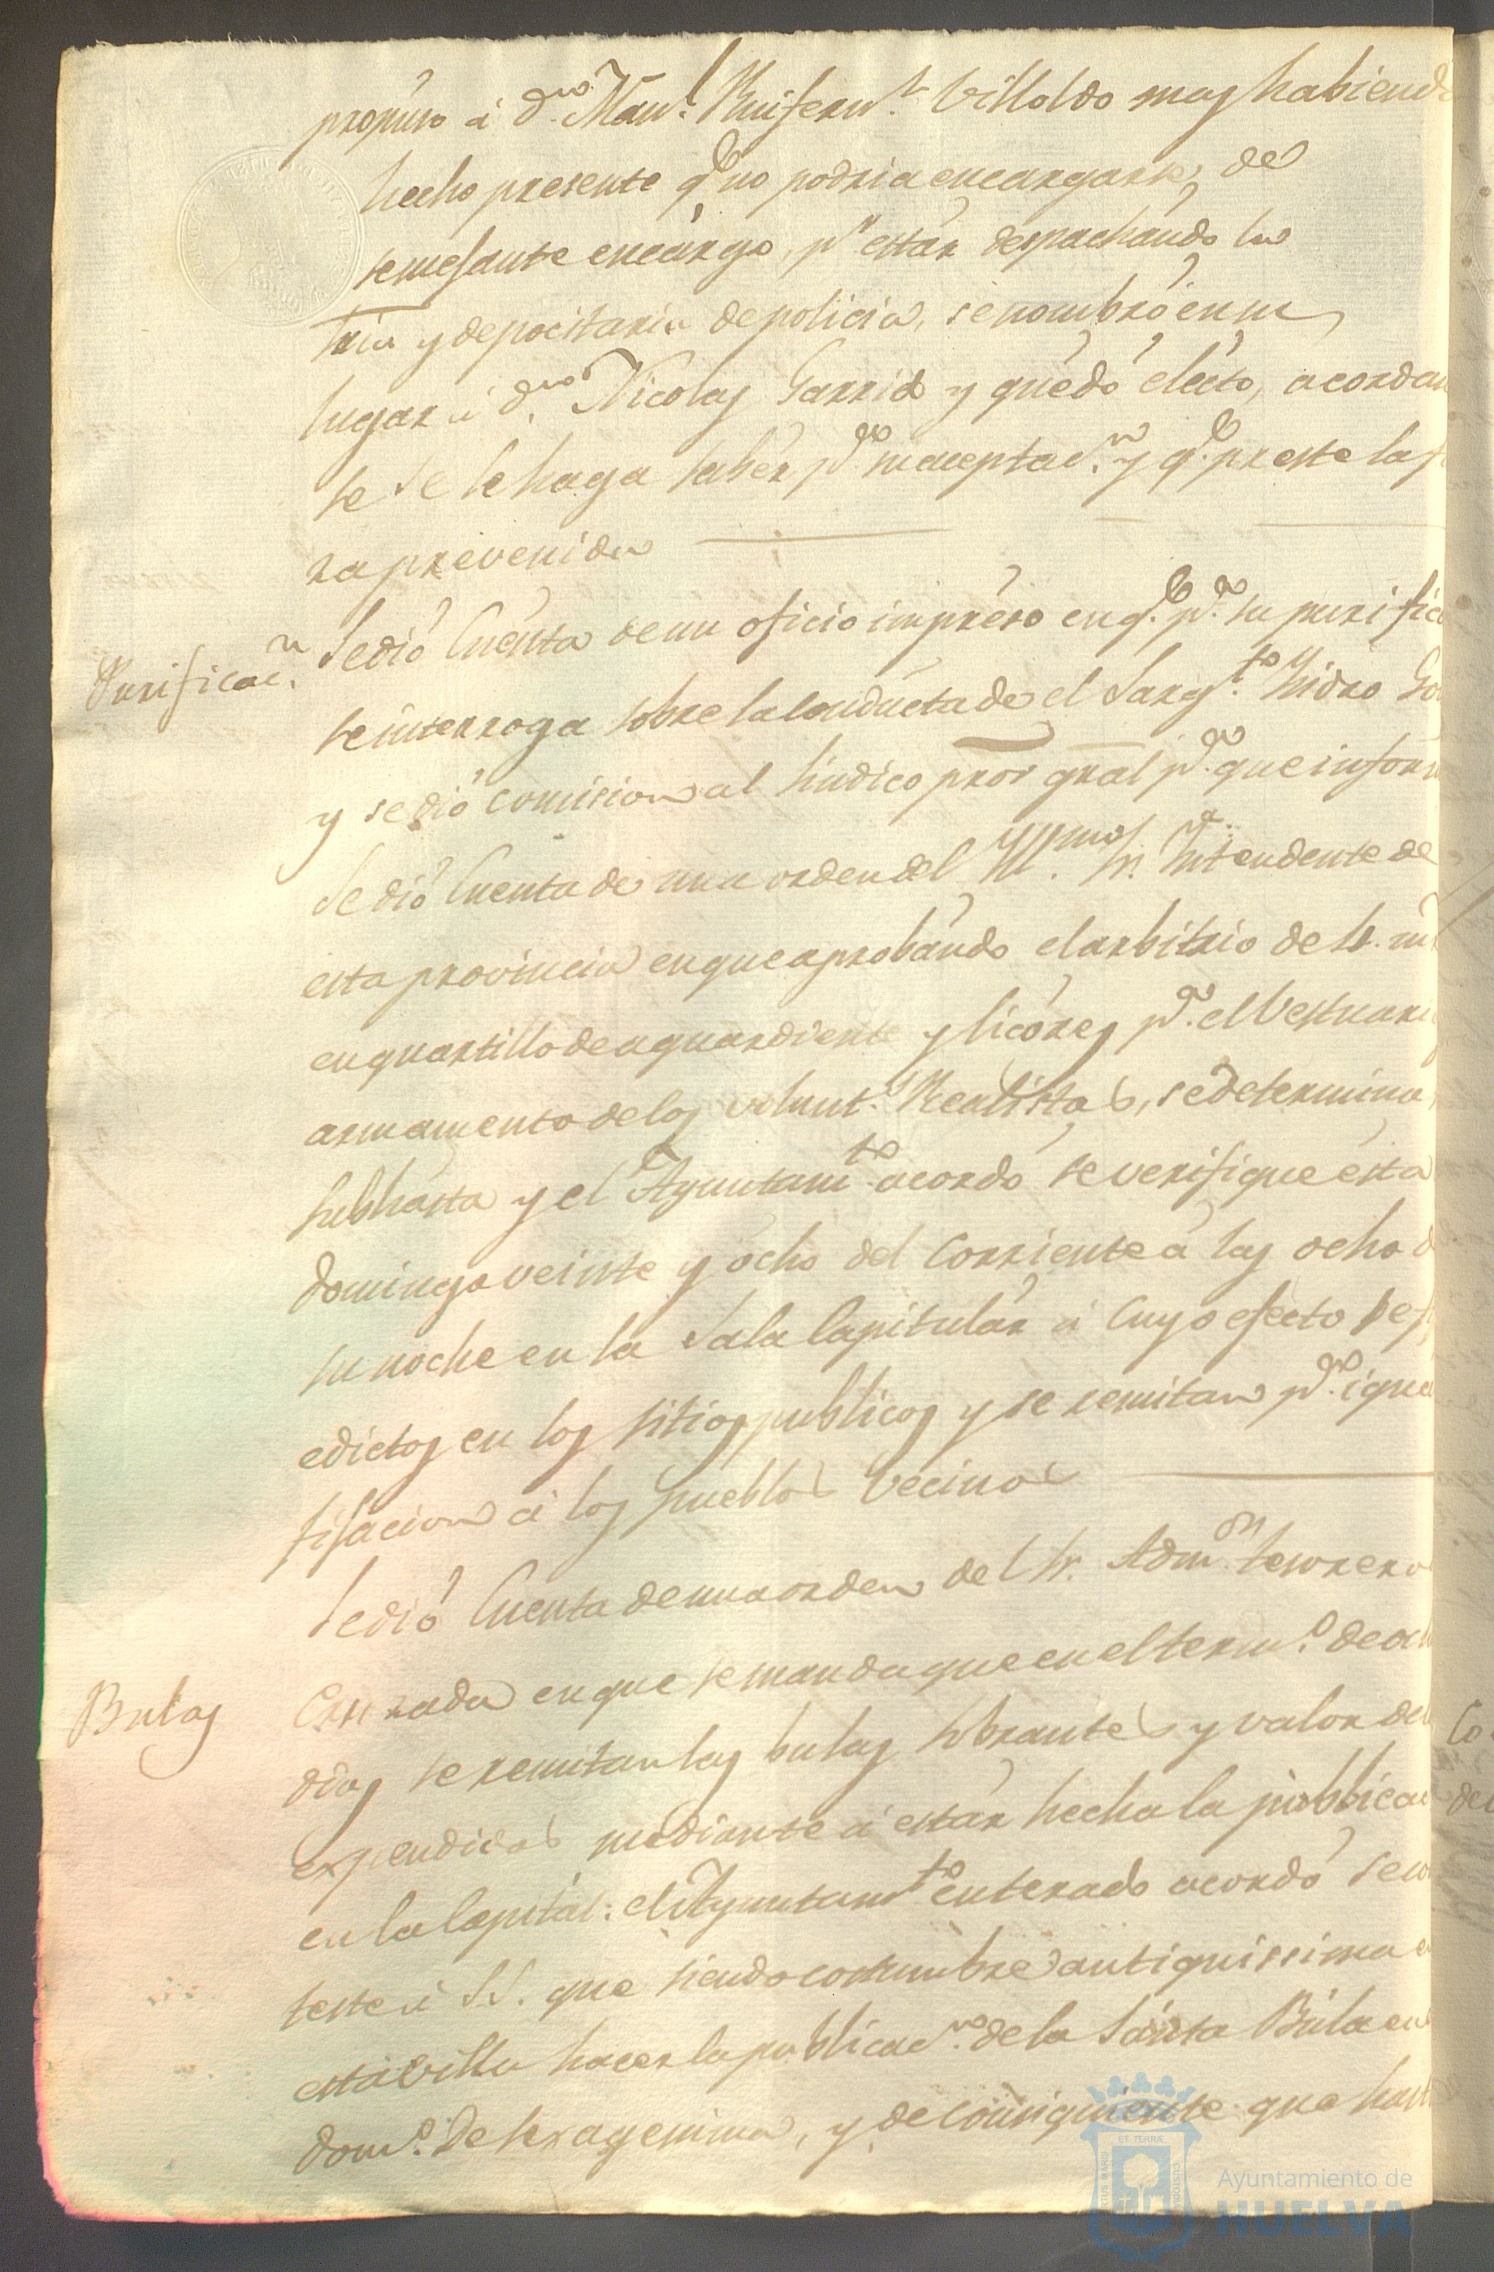 propuso á Dn. Manl. Ruifernz. Villoldo mas habiendo
hecho presente qe. no podria encargarse de
semejante encargo, pr. estár despachando la
tria y depocitaria de policia, se nombró en su
lugar á Dn. Nicolas Garrido y quedó electo, acordan
se se le haga saber pa. su aceptacn. y qe. preste la
za prevenida
Purificacn.
Se dió Cuenta de un oficio impreso en qe. pa. su purifica
se interroga sobre la conducta de el Sargto. Ysidro
y se dió comision al Sindico pror gral pa. que inform
Se dió Cuenta de una orden del Yllmo. Sr. Yntendente de
esta provincia en que aprobando el arbitrio de
en quartillo de aguardiente y licóres pa. el Vestuario
armamento de los volunts. Realistas, se determina
subhasta y el Ayuntamto. acordó se verifique ésta
domingo veinte y ocho del Corriente á las ocho d
su noche en la Sala Capitulár á Cuyo efecto se
edictos en los sitios publicos y se remitan pa. igua
fijacion á los pueblos vecinos
Se dió Cuenta de una orden del Sr. Admon. tesorero
Bulas
Cruzada en que se manda que en el termo. de
dias se remitan las bulas sobrantes y valor de
expendidas mediante á estár hecha la publicac
en la Capital: el Ayuntamto. enterado acordó se con
teste á S.S. que siendo costumbre antiquissima en
esta villa hacer la publicacn. de la Santa Bula en
domo. de sexagesima, y de consiguiente que hasta
Co
del
Ayuntamiento de
HUELVA